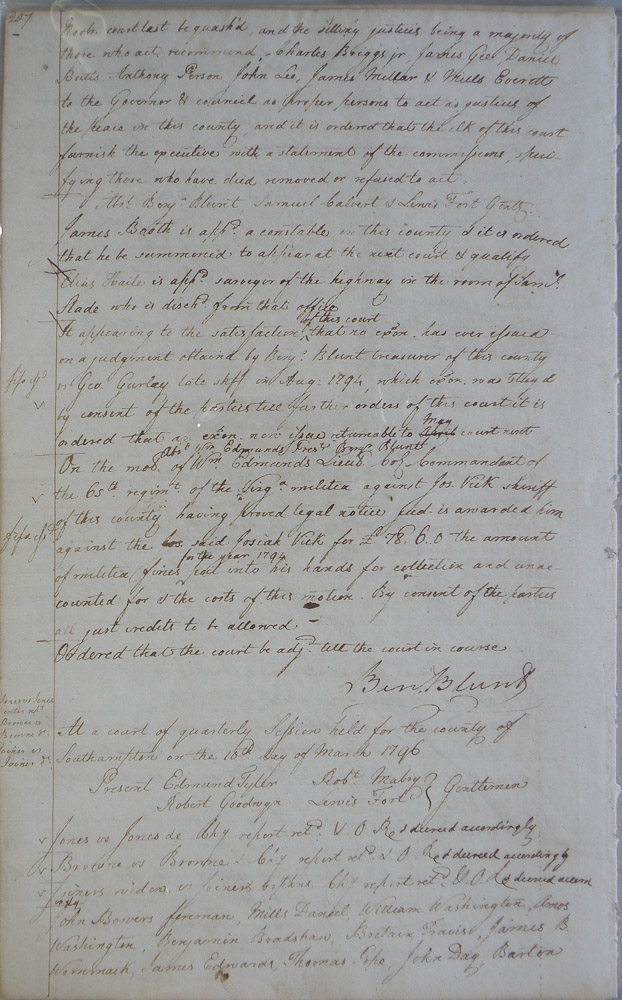 287
court last be quash'd, and the sitting justices being a majority of
those who act, recommend, Charles Briggs jr James Gee, Daniel
Butts, Anthony Person John Lee, James Millar & Mills Everett
to the Governor & council as proper persons to act as justices of
the peace in this county, and it is ordered that the clk of this court
furnish the executive with a statement of the commissions, speci-
fying those who have died removed or refused to act.
Abst. Benja. Blunt, Samuel Calvert & Lewis Fort Gents.
James Booth is appd. a constable in this county & it is ordered
that he be summoned to appear at the next court & qualify
Elias Haile is appd. surveyor of the highway in the room of Saml.
Slade who is dischd. from that office
of this court
It appearing to the satisfaction ^ that no exon. has ever issued
on a judgment obtaind by Benj: Blunt treasurer of this county
vs Geo. Gurley late shff in Aug: 1794, which exon. was stayd
by consent of the parties till farther orders of this court it is
May
ordered that an exon. now issue returnable to court next
Abst. Wm Edmunds Prest. Benja Blunt
On the mod. of Wm Edmunds Lieut. Col. Commandant of
the 65th. regimt. of the Virga. militia against Jos. Vick sheriff
of this county having proved legal notice jud. is awarded him
against the said Josiah Vick for £ 78. 6. 0 the amount
for the year 1794
of militia fines ^ put into his hands for collection and unac-
counted for & the costs of this motion. By consent of the parties
all just credits to be allowed
Ordered that the court be adjd. till the court in course
Ben. Blunt
Jones vs Jones
Browne vs
Browne &c.
Joiner vs
Joiner &c.
At a court of quarterly Session held for the county of
Southampton on the 10th day of March 1796
Present Edmund Tyler Robt. Mabry } Gentlemen
Robert Goodwyn Lewis Fort
Jones vs Jones de Chy report retd. & O Rec & decreed accordingly
Browne vs Browne & Chy report retd. & O Rec & decreed accordingly
Joiners widow vs Joiners orphns. Chy report retd. & O. Rec decreed accord
ingly
John Bowers foreman, Mills Daniel, William Washington, Amos
Washington, Benjamin Bradshaw, Britain Travis, James B.
Wommack, James Edwards, Thomas Pope, John Day, Barton